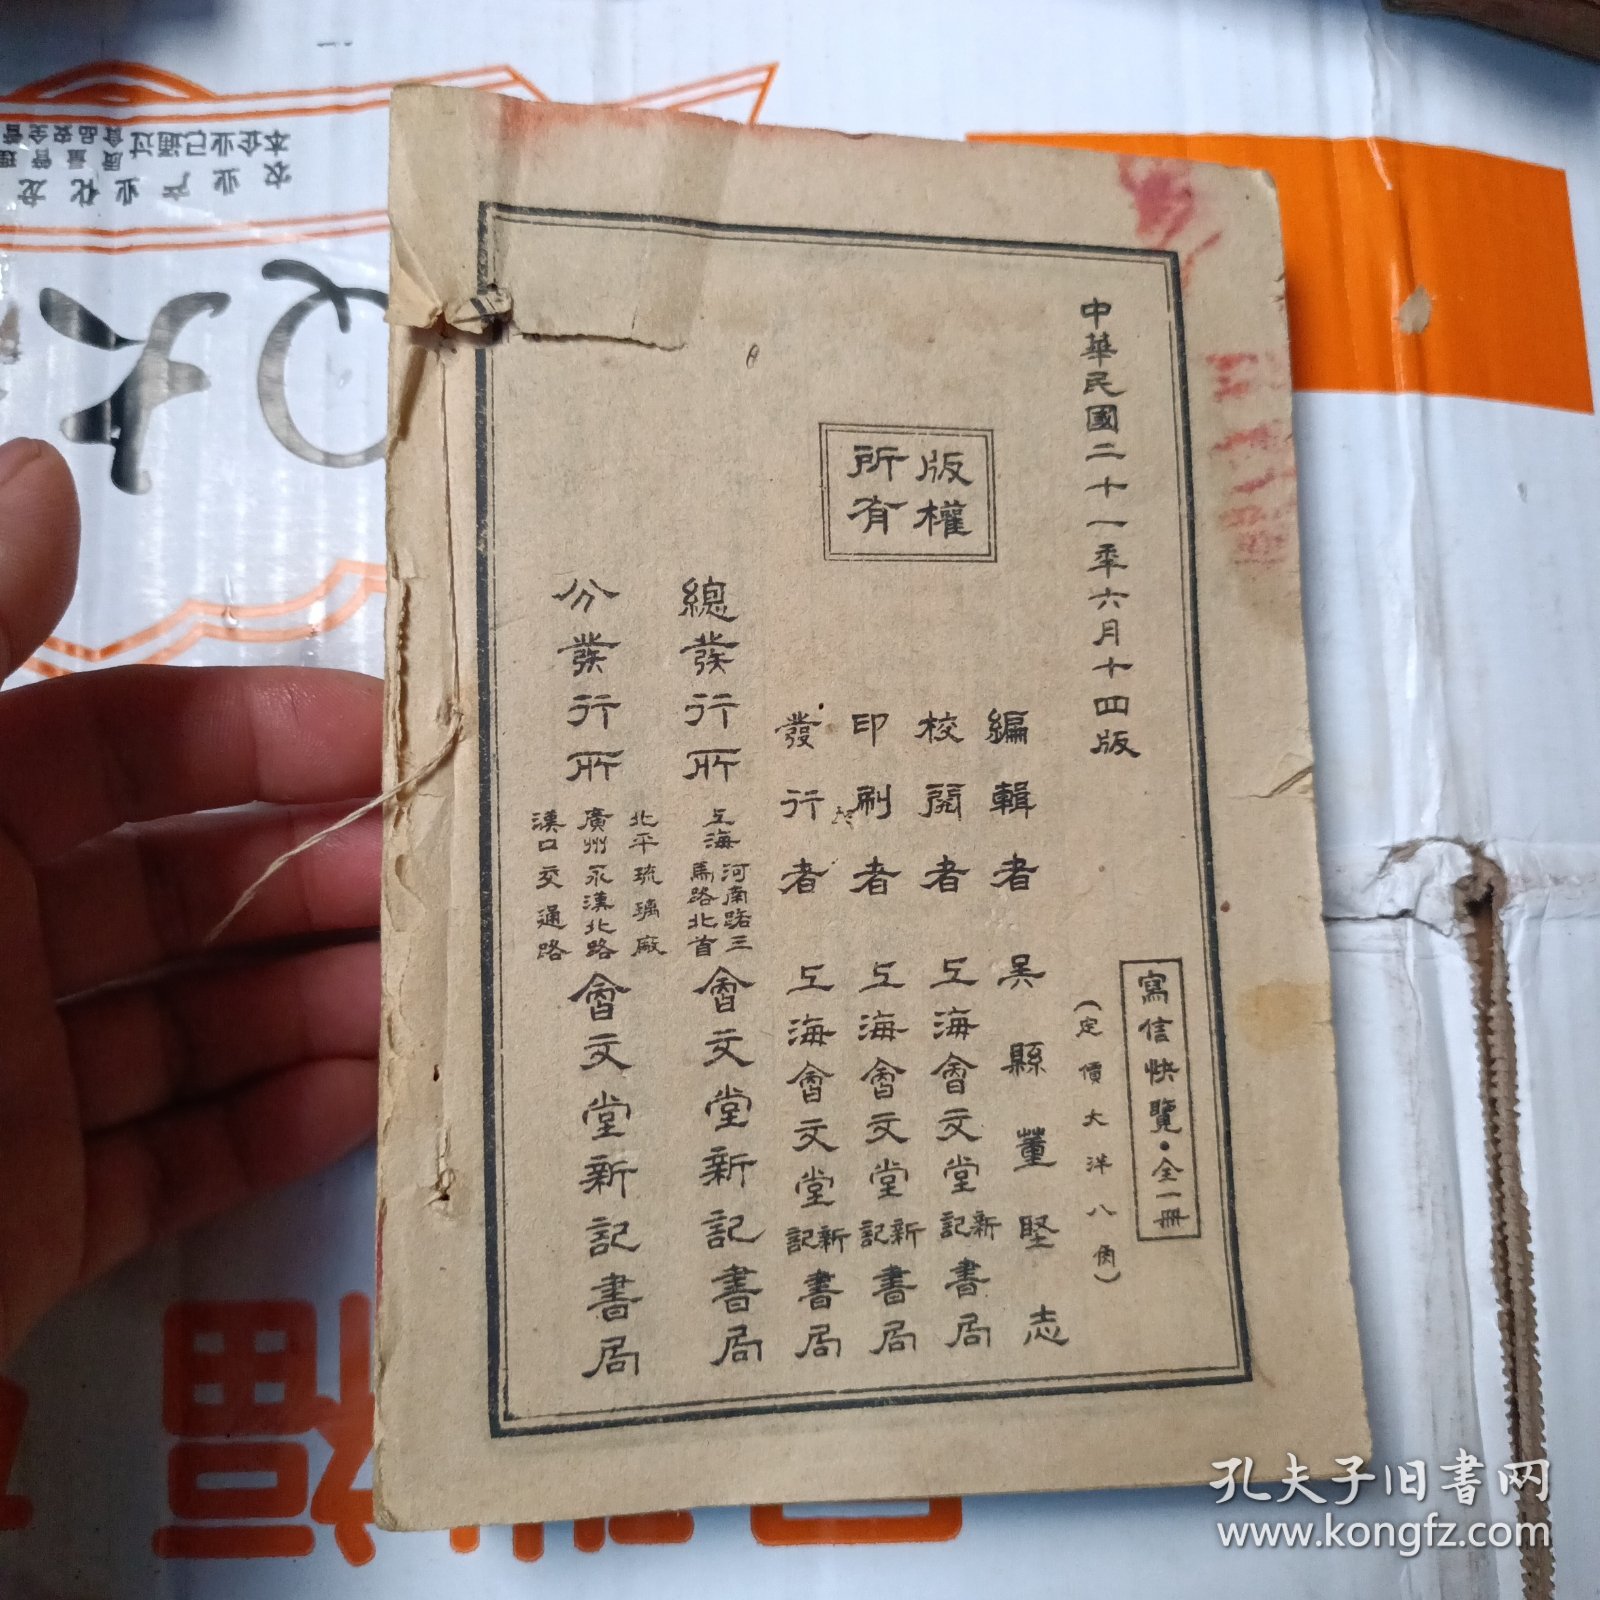 中華民國二十一年六月十四版
寫信快覽·全一冊
(定價大洋八角)
版權
所有
編輯者 吳縣董堅志
校閱者 上海會文堂新記書局
印刷者 上海會文堂新記書局
發行者 上海會文堂新記書局
總發行所 上海河南路三馬路北首 會文堂新記書局
分發行所 北平琉璃廠 廣州永漢北路 漢口交通路 會文堂新記書局
农业产业化龙
本企业已通过
孔夫子旧書网
www.kongfz.com